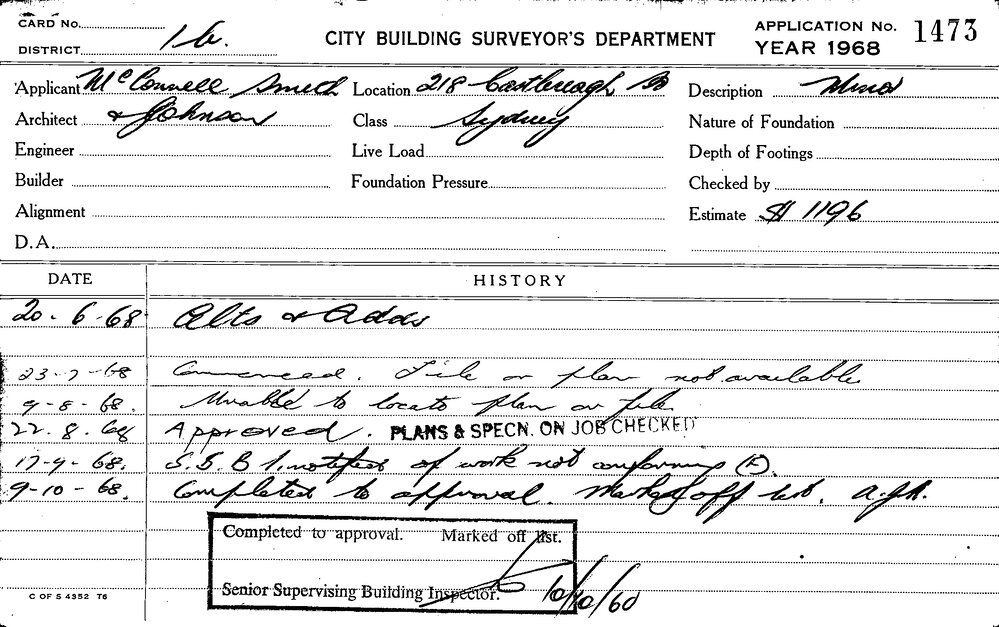 CARD No.
DISTRICT 1b.
CITY BUILDING SURVEYOR'S DEPARTMENT
APPLICATION No. 1473
YEAR 1968
Applicant McConnell Smith Location 218 Castlereagh Description
Architect & Johnson Class Sydney Nature of Foundation
Engineer Live Load Depth of Footings
Builder Foundation Pressure Checked by
Alignment Estimate $ 1196
D.A.
DATE HISTORY
20-6-68 Alts & Adds
23-7-68 Commenced. File or plan not available
9-8-68. Unable to locate plan or file
22.8.68 Approved. PLANS & SPECN. ON JOB CHECKED
17-9-68. S.S.B.I. notified of work not conforming
9-10-68. Completed to approval. Marked off list.
Completed to approval. Marked off list.
Senior Supervising Building Inspector. 10/10/68
C OF S 4352 76